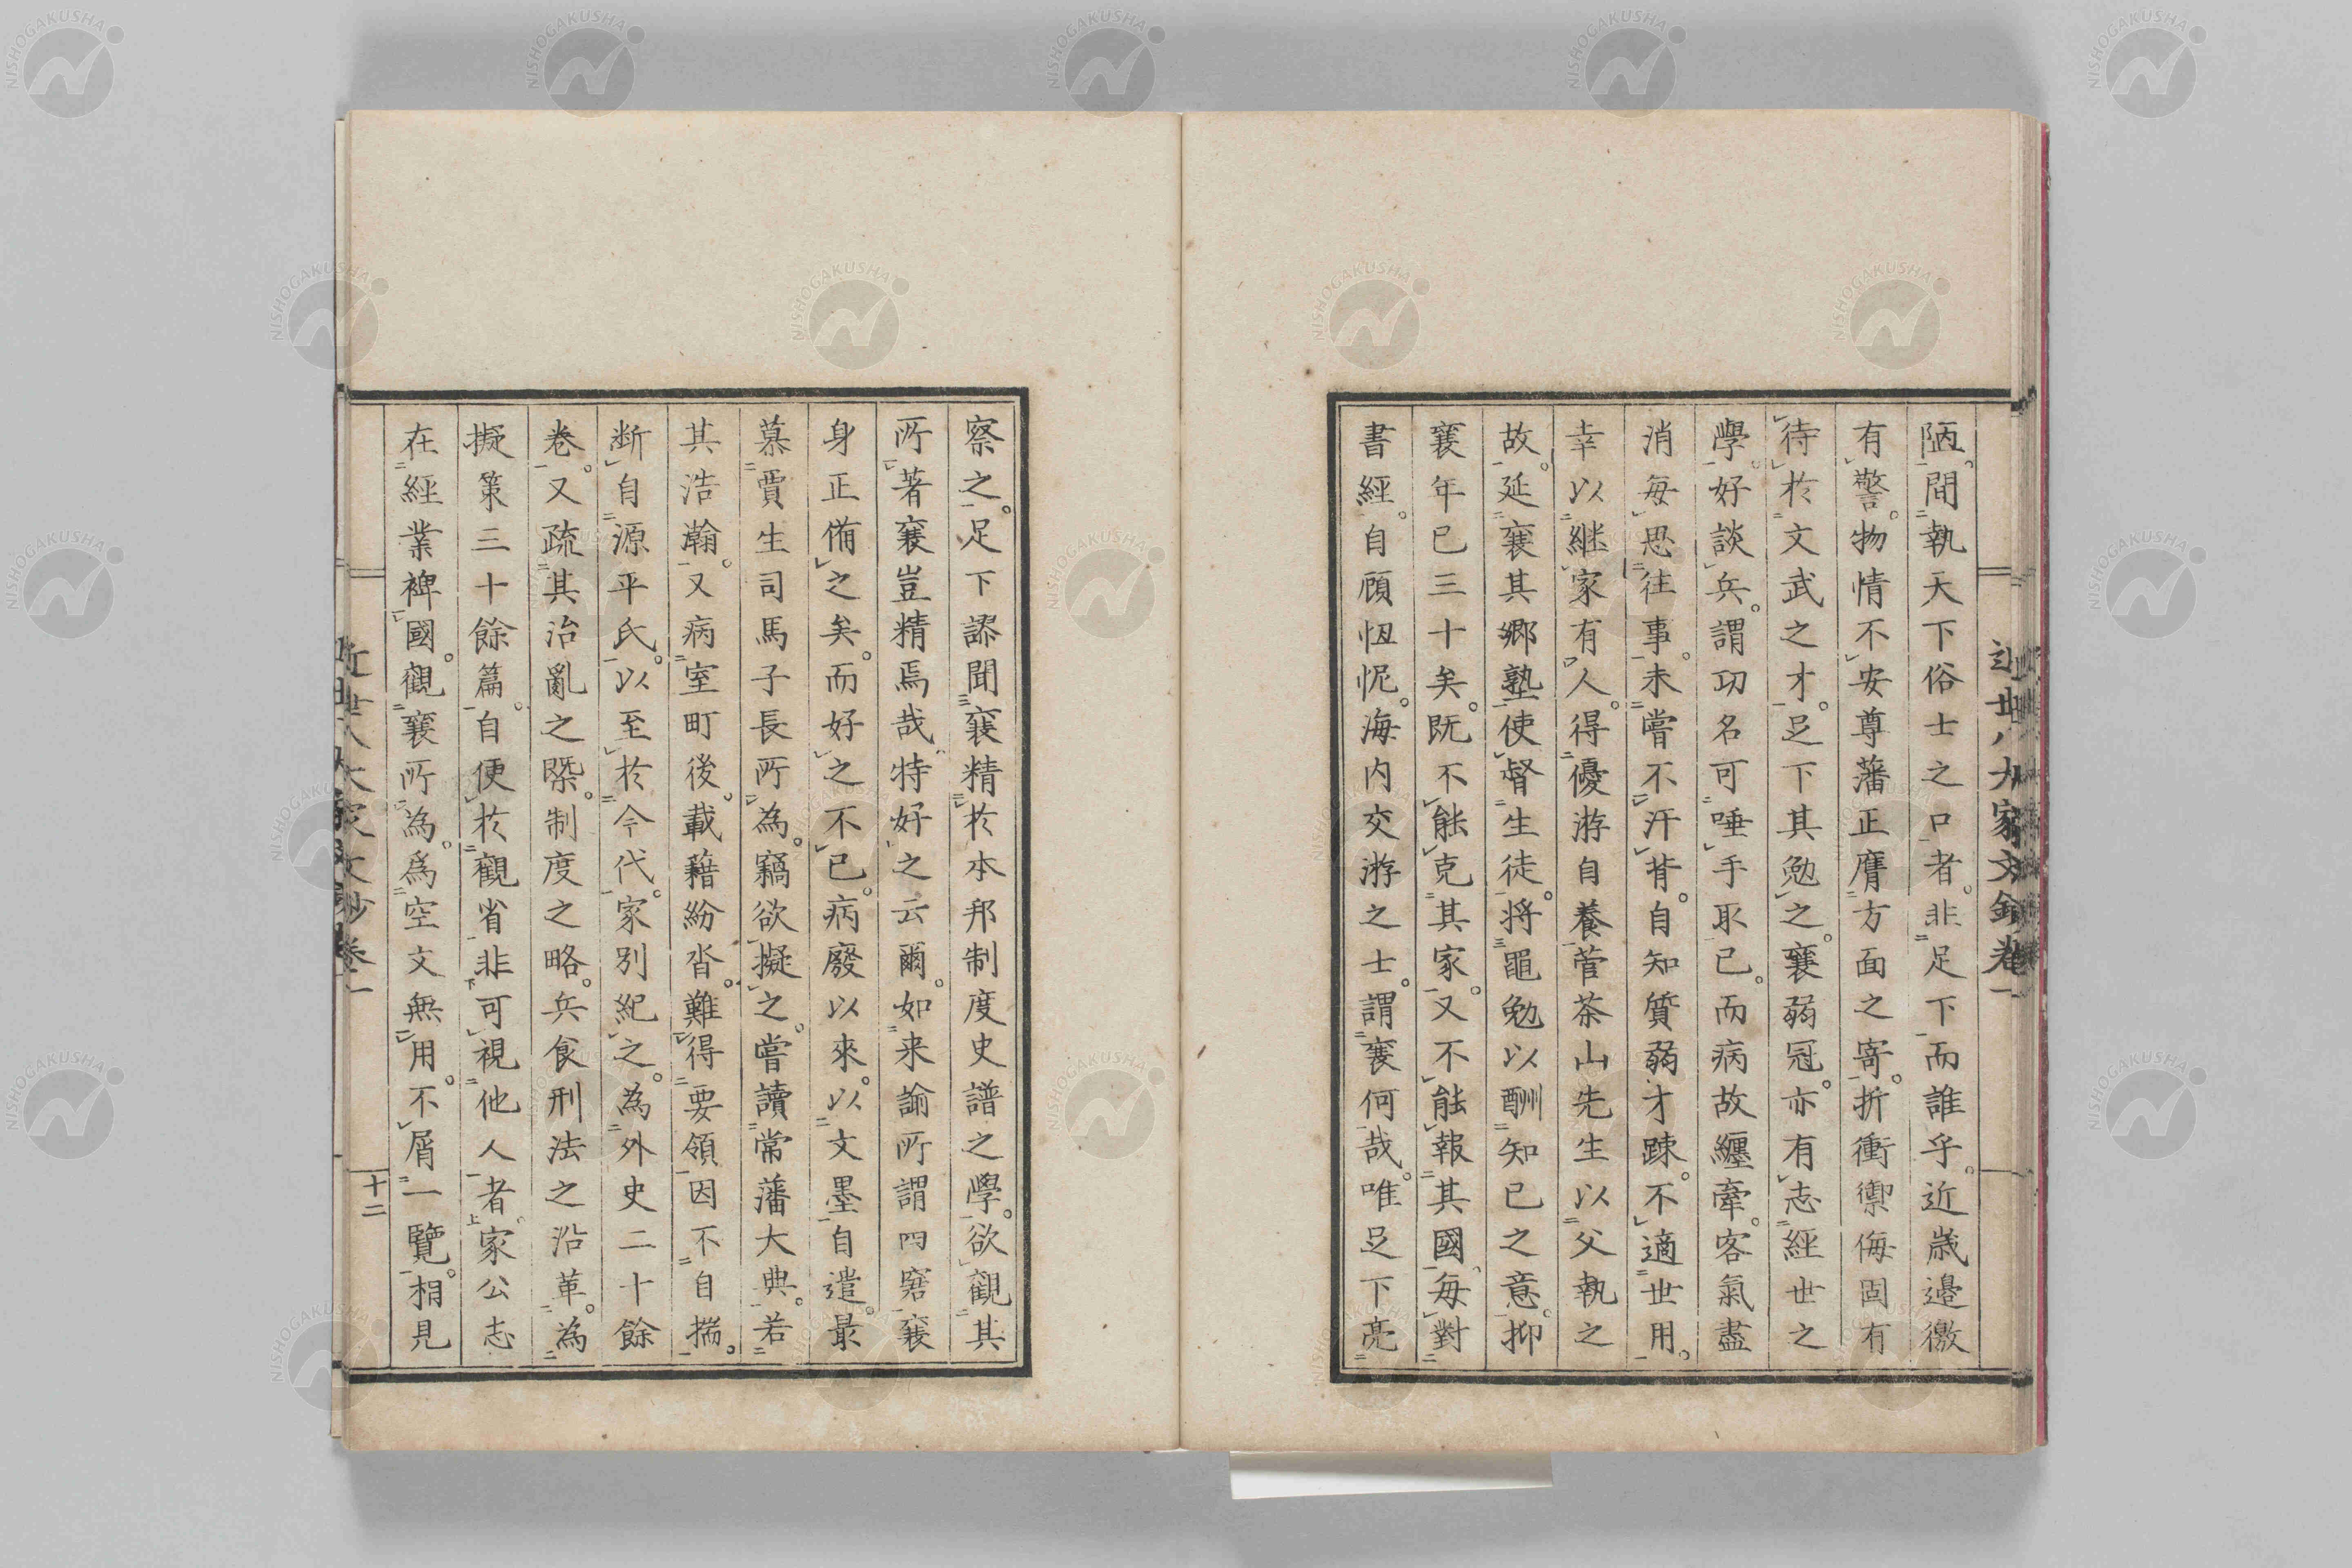 近世八大家文鈔卷一
陋。間執天下俗士之口者。非足下而誰乎。近歲邊徼
有警。物情不安尊藩正膺方面之寄。折衝禦侮固有
待於文武之才。足下其勉之。襄弱冠。亦有志經世之
學。好談兵。謂功名可唾手取已。而病故纏牽。客氣盡
消每思往事。未嘗不汗背。自知質弱才踈。不適世用。
幸以継家有人。得優游自養菅茶山先生以父執之
故。延襄其鄉塾使督生徒。将黽勉以酬知己之意。抑
襄年已三十矣。既不能克其家。又不能報其國每對
書經。自顧忸怩。海内交游之士。謂襄何哉。唯足下亮
察之。足下謬聞襄精於本邦制度史譜之學。欲觀其
所著襄豈精焉哉特好之云爾。如来諭所謂四窘襄
身正備之矣。而好之不已。病廢以來。以文墨自遣。最
慕賈生司馬子長所為。竊欲擬之。嘗讀常藩大典。若
其浩瀚。又病室町後。載藉紛沓。難得要領因不自揣。
断自源平氏。以至於今代。家別紀之。為外史二十餘
卷。又疏其治亂之槩。制度之略。兵食刑法之沿革。為
擬策三十餘篇。自便於觀省非可視他人者家公志
在經業裨國。觀襄所為。爲空文無用。不屑一覽。相見
近世八大家文鈔卷一
十二
NISHOGAKUSHA